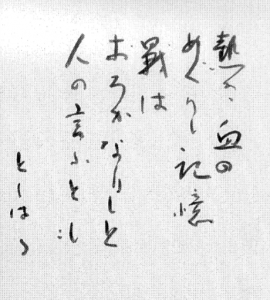 熱き血の
めぐりし記憶
戰は
おろかなりしと
人の言ふとも